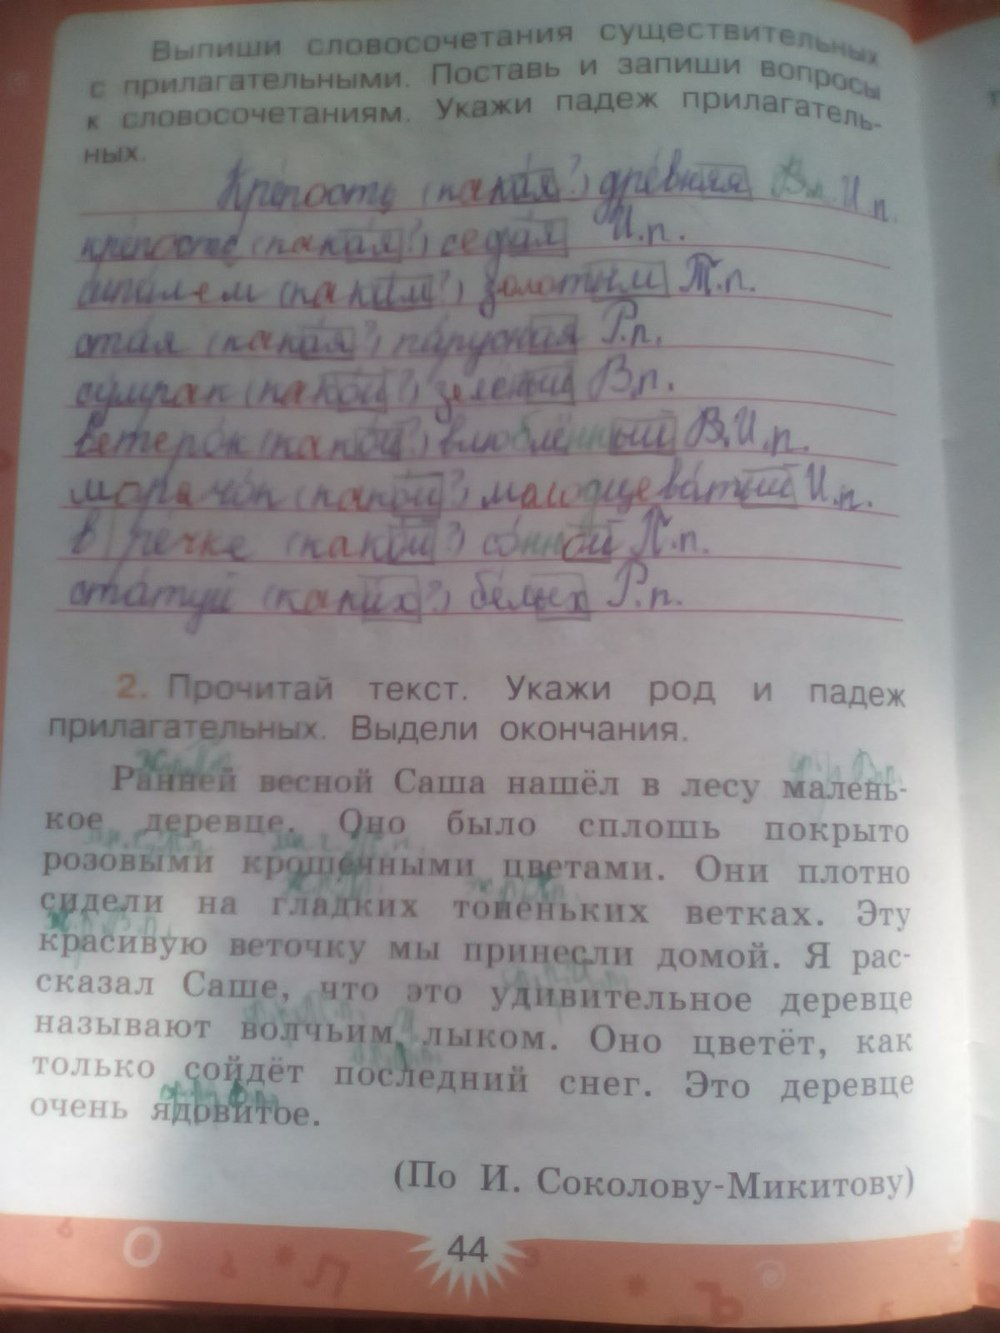 Выпиши словосочетания существительных
с прилагательными. Поставь и запиши вопросы
к словосочетаниям. Укажи падеж прилагатель-
ных.
Крепость (какая?) древняя В.п. И.п.
крепость (какая?) седая И.п.
(каким?) золотым Т.п.
стая (какая?) парусная Р.п.
сумрак (какой?) зелёный В.п.
ветерок (какой?) влюблённый В.И.п.
морячок (какой?) молодцеватый И.п.
в речке (какой?) сонной П.п.
статуй (каких?) белых Р.п.
2. Прочитай текст. Укажи род и падеж
прилагательных. Выдели окончания.
Ранней весной Саша нашёл в лесу малень-
кое деревце. Оно было сплошь покрыто
розовыми крошечными цветами. Они плотно
сидели на гладких тоненьких ветках. Эту
красивую веточку мы принесли домой. Я рас-
сказал Саше, что это удивительное деревце
называют волчьим лыком. Оно цветёт, как
только сойдёт последний снег. Это деревце
очень ядовитое.
(По И. Соколову-Микитову)
44